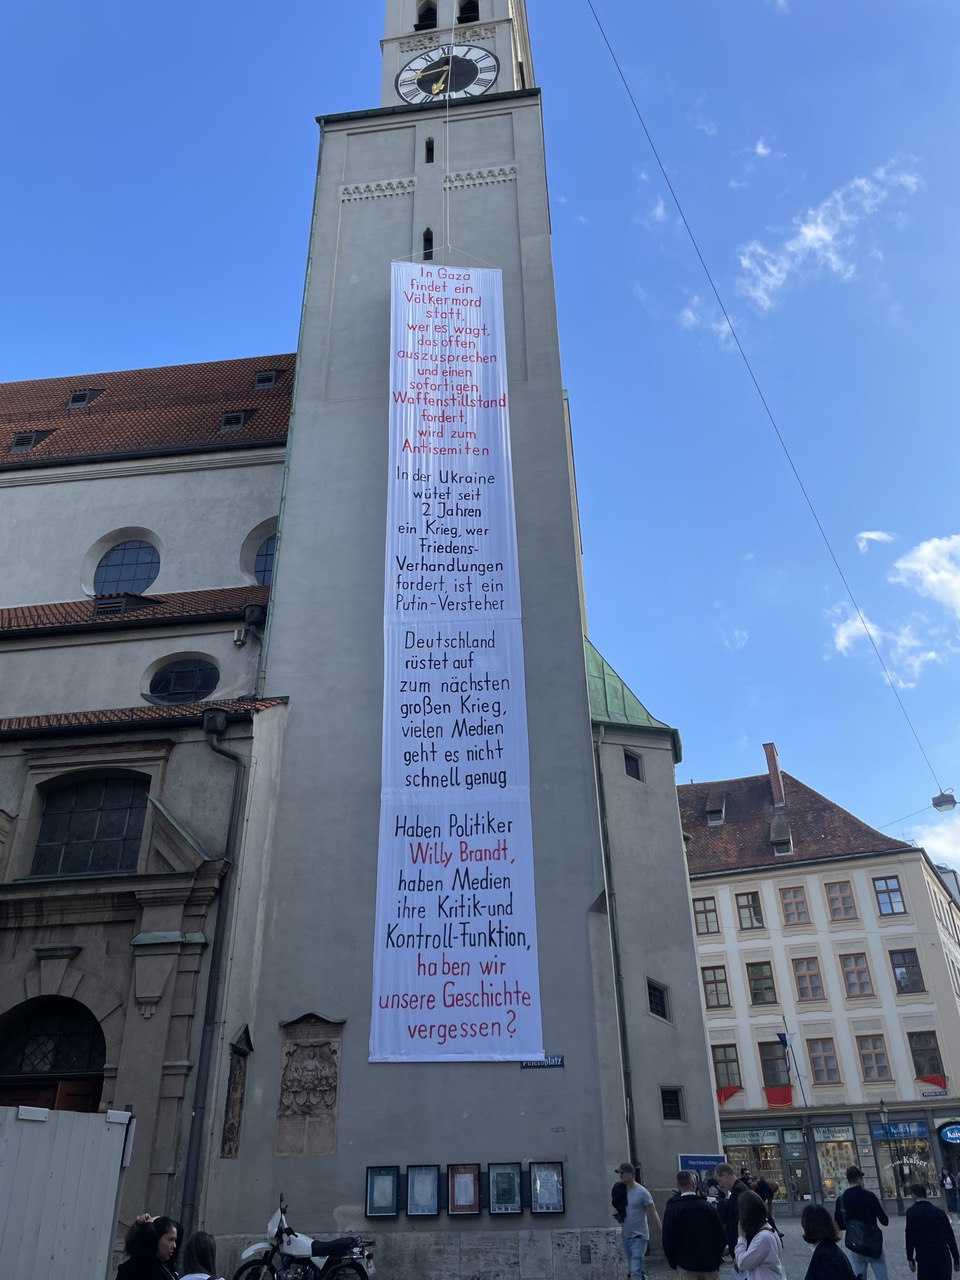 In Gaza
findet ein
Völkermord
statt,
wer es wagt,
das offen
auszusprechen
und einen
sofortigen
Waffenstillstand
fordert,
wird zum
Antisemiten
In der Ukraine
wütet seit
2 Jahren
ein Krieg, wer
Friedens-
Verhandlungen
fordert, ist ein
Putin-Versteher
Deutschland
rüstet auf
zum nächsten
großen Krieg,
vielen Medien
geht es nicht
schnell genug
Haben Politiker
Willy Brandt,
haben Medien
ihre Kritik-und
Kontroll-Funktion,
haben wir
unsere Geschichte
vergessen?
Petersplatz
Kaiser